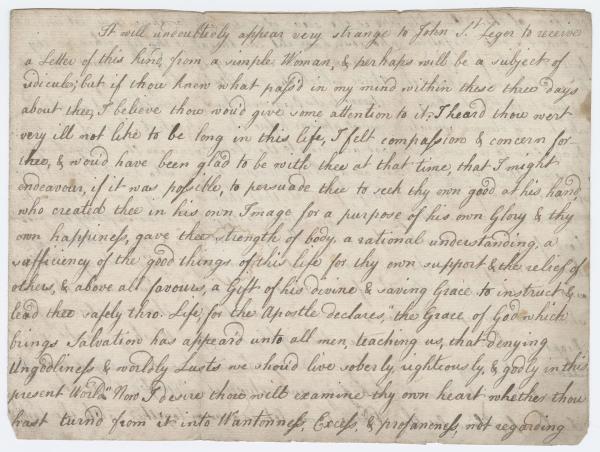 It will undoubtedly appear very strange to John St. Leger to receive
a Letter of this kind, from a simple Woman, & perhaps will be a subject of
ridicule; but if thou knew what pass'd in my mind within these three days
about thee, I believe thou wou'd give some attention to it; I heard thou wert
very ill not like to be long in this life, I felt compassion & concern for
thee, & wou'd have been glad to be with thee at that time, that I might
endeavour, if it was possible, to persuade thee to seek thy own good at his hand,
who created thee in his own Image for a purpose of his own Glory & thy
own happiness, gave thee strength of body, a rational understanding, a
sufficiency of the good things of this life for thy own support & the relief of
others, & above all favours, a Gift of his divine & saving Grace to instruct &
lead thee safely thro. Life, for the Apostle declares, "the Grace of God which
brings Salvation has appeard unto all men, teaching us, that denying
Ungodliness & worldly Lusts we should live soberly, righteously, & godly in this
present World." Now I desire thou will examine thy own heart whether thou
hast turnd from it into Wantonness, Excess, & profaneness, not regarding